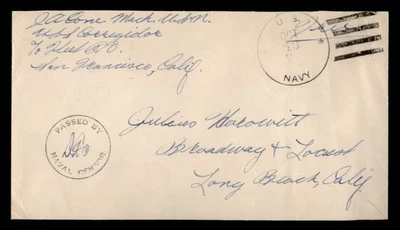 J.A. Cone Mach. U.S.N.
USS Corregidor
℅ Fleet P.O.
San Francisco, Calif.
U.S.
OCT
NAVY
Free
PASSED BY
NAVAL CENSOR
Julius Horowitt
Broadway & Locust
Long Beach, Calif